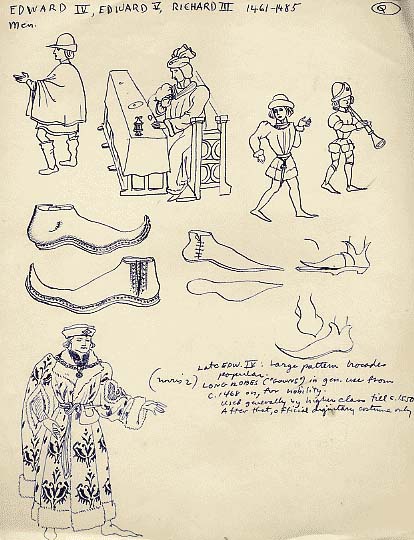 EDWARD IV, EDWARD V, RICHARD III 1461-1485
Q
Men.
Late EDW. IV: Large pattern brocades
popular.
LONG ROBES ("GOWNS") in gen. use from
c. 1468 on, for nobility.
Used generally by higher class till c. 1550
After that, official dignitary costume only